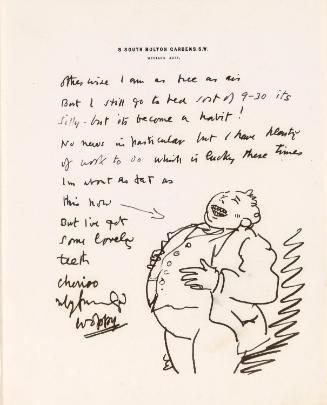 8 SOUTH BOLTON GARDENS. S.W.
otherwise I am as free as air
But I still go to bed sort of 9-30 its
silly - but its become a habit!
No news in particular but I have plenty
of work to do which is lucky these times
I'm about as fat as
this now
But I've got
some lovely
teeth
cherioo